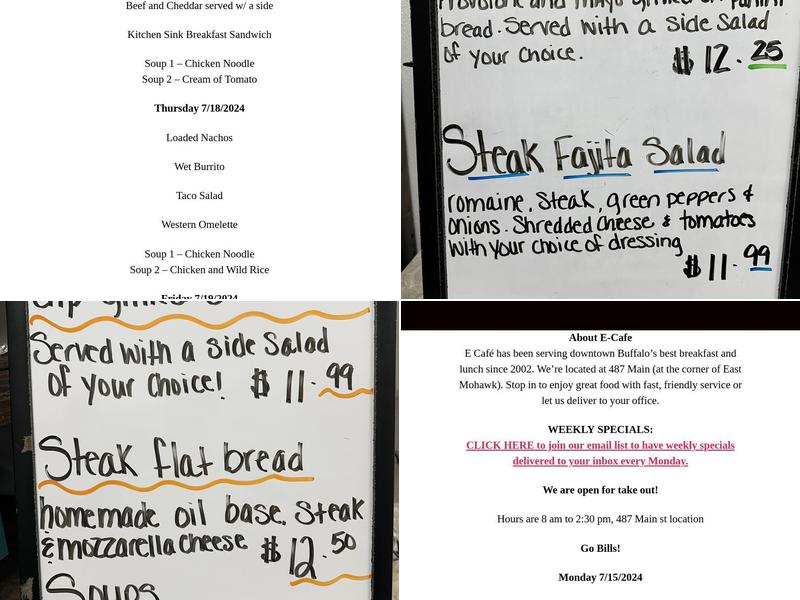 Beef and Cheddar served w/ a side
Kitchen Sink Breakfast Sandwich
Soup 1 – Chicken Noodle
Soup 2 – Cream of Tomato
Thursday 7/18/2024
Loaded Nachos
Wet Burrito
Taco Salad
Western Omelette
Soup 1 – Chicken Noodle
Soup 2 – Chicken and Wild Rice
Friday 7/19/2024
Provolone and mayo grilled on panini
bread. Served with a side Salad
of your choice.
$12.25
Steak Fajita Salad
romaine, Steak, green peppers &
Onions. Shredded Cheese & tomatoes
with your choice of dressing
$11.99
Served with a side Salad
of your Choice! $11.99
Steak flat bread
homemade oil base. Steak
& mozzarella cheese $12.50
Soups
About E-Cafe
E Café has been serving downtown Buffalo’s best breakfast and
lunch since 2002. We’re located at 487 Main (at the corner of East
Mohawk). Stop in to enjoy great food with fast, friendly service or
let us deliver to your office.
WEEKLY SPECIALS:
CLICK HERE to join our email list to have weekly specials
delivered to your inbox every Monday.
We are open for take out!
Hours are 8 am to 2:30 pm, 487 Main st location
Go Bills!
Monday 7/15/2024